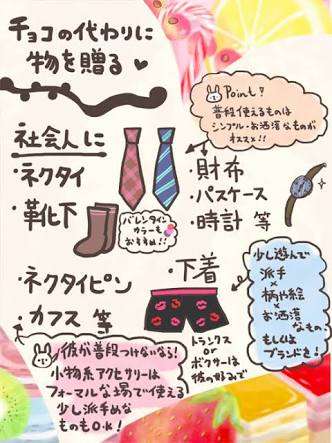 チョコの代わりに
物を贈る
Point!
普段使えるものは
シンプル・お洒落なものが
オススメ!!
社会人に
・ネクタイ
・靴下
バレンタイン
カラーも
おすすめ!!
・財布
・パスケース
・時計 等
・ネクタイピン
・カフス 等
・下着
少し遊んで
派手
×
柄や絵
×
お洒落
なもの
もしくは
ブランドを!
トランクス
or
ボクサーは
彼の好みで
彼が普段つけないなら!
小物系アクセサリーは
フォーマルな場で使える
少し派手めな
ものもO.K!